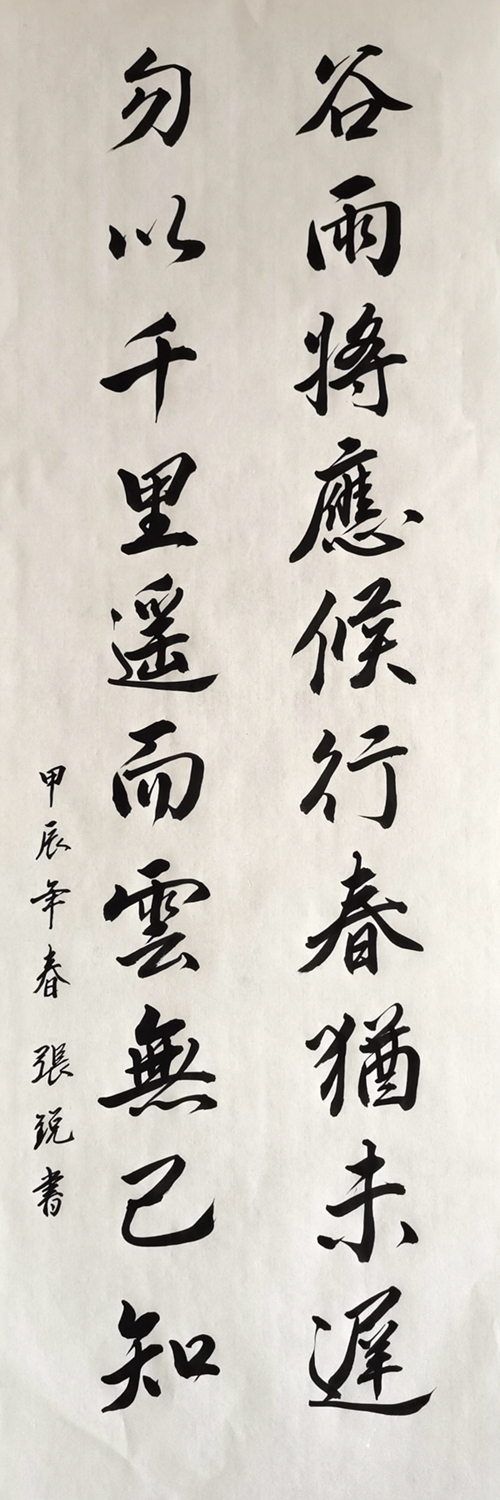 谷雨將應候行春猶未遲
勿以千里遥而雲無已知
甲辰年春 張锐書